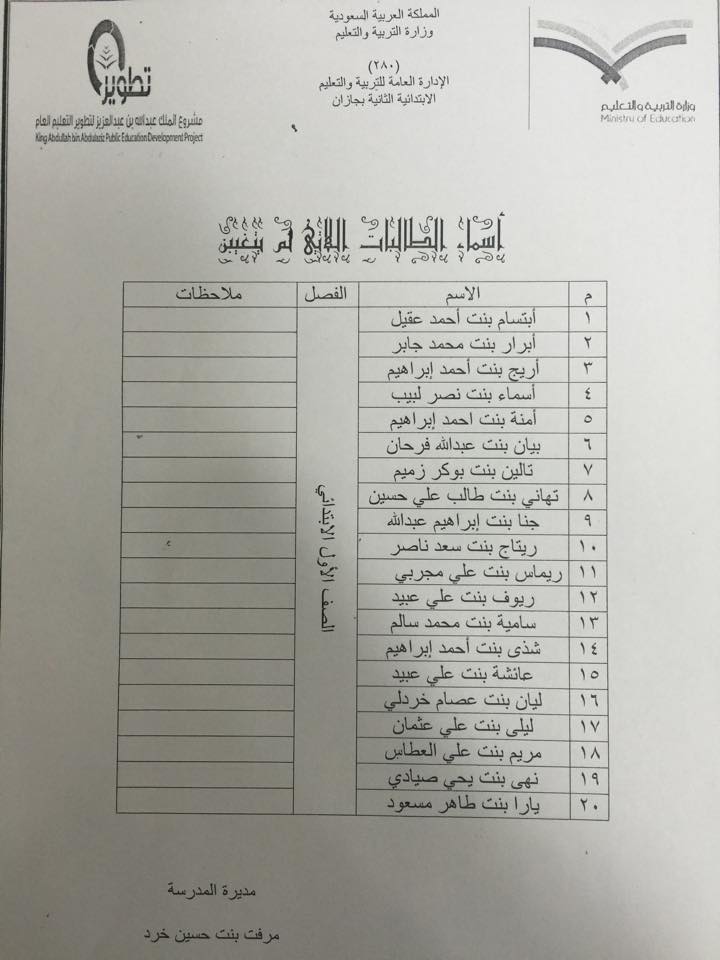 المملكة العربية السعودية
وزارة التربية والتعليم
(٢٨٠)
الإدارة العامة للتربية والتعليم
الابتدائية الثانية بجازان
وزارة التربية والتعليم
Ministry of Education
تطوير
مشروع الملك عبدالله بن عبدالعزيز لتطوير التعليم العام
King Abdullah bin Abdulaziz Public Education Development Project
أسماء الطالبات اللاتي لم يتغيبن
م الاسم الفصل ملاحظات
١ أبتسام بنت أحمد عقيل
٢ أبرار بنت محمد جابر
٣ أريج بنت أحمد إبراهيم
٤ أسماء بنت نصر لبيب
٥ أمنة بنت احمد إبراهيم
٦ بيان بنت عبدالله فرحان
٧ تالين بنت بوكر زميم
٨ تهاني بنت طالب علي حسين
٩ جنا بنت إبراهيم عبدالله
١٠ ريتاج بنت سعد ناصر
١١ ريماس بنت علي مجربي
١٢ ريوف بنت علي عبيد
١٣ سامية بنت محمد سالم
١٤ شذى بنت أحمد إبراهيم
١٥ عائشة بنت علي عبيد
١٦ ليان بنت عصام خردلي
١٧ ليلى بنت علي عثمان
١٨ مريم بنت علي العطاس
١٩ نهى بنت يحي صيادي
٢٠ يارا بنت طاهر مسعود
الصف الأول الابتدائي
مديرة المدرسة
مرفت بنت حسين خرد